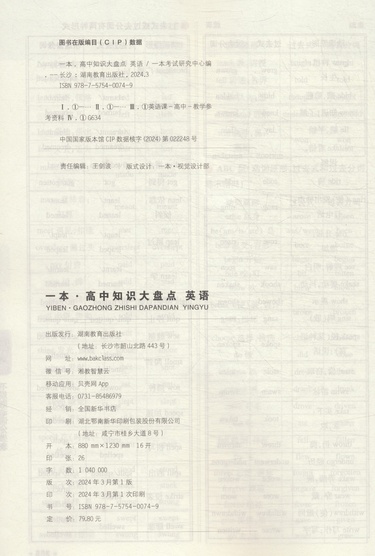 图书在版编目(CIP)数据
一本. 高中知识大盘点 英语 / 一本考试研究中心编
. -- 长沙 : 湖南教育出版社, 2024.3
ISBN 978-7-5754-0074-9
Ⅰ. ①一… Ⅱ. ①一… Ⅲ. ①英语课－高中－教学参
考资料 Ⅳ. ①G634
中国国家版本馆 CIP 数据核字(2024)第 022248 号
责任编辑: 王剑波 版式设计: 一本·视觉设计部
一本·高中知识大盘点 英语
YIBEN·GAOZHONG ZHISHI DAPANDIAN YINGYU
出版发行: 湖南教育出版社
(地址: 长沙市韶山北路 443 号)
网 址: www.bakclass.com
微 信 号: 湘教智慧云
移动应用: 贝壳网 App
客服电话: 0731-85486979
经 销: 全国新华书店
印 刷: 湖北鄂南新华印刷包装股份有限公司
(地址: 咸宁市桂乡大道 8 号)
开 本: 880 mm×1230 mm 16 开
印 张: 26
字 数: 1 040 000
版 次: 2024 年 3 月第 1 版
印 次: 2024 年 3 月第 1 次印刷
书 号: ISBN 978-7-5754-0074-9
定 价: 79.80 元